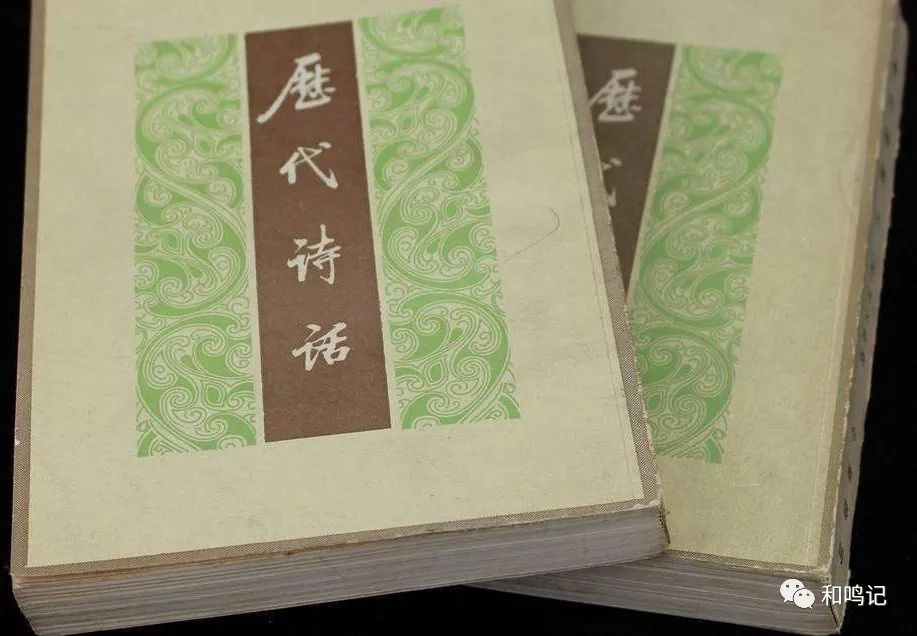 歷代诗话
歷代
和鸣记